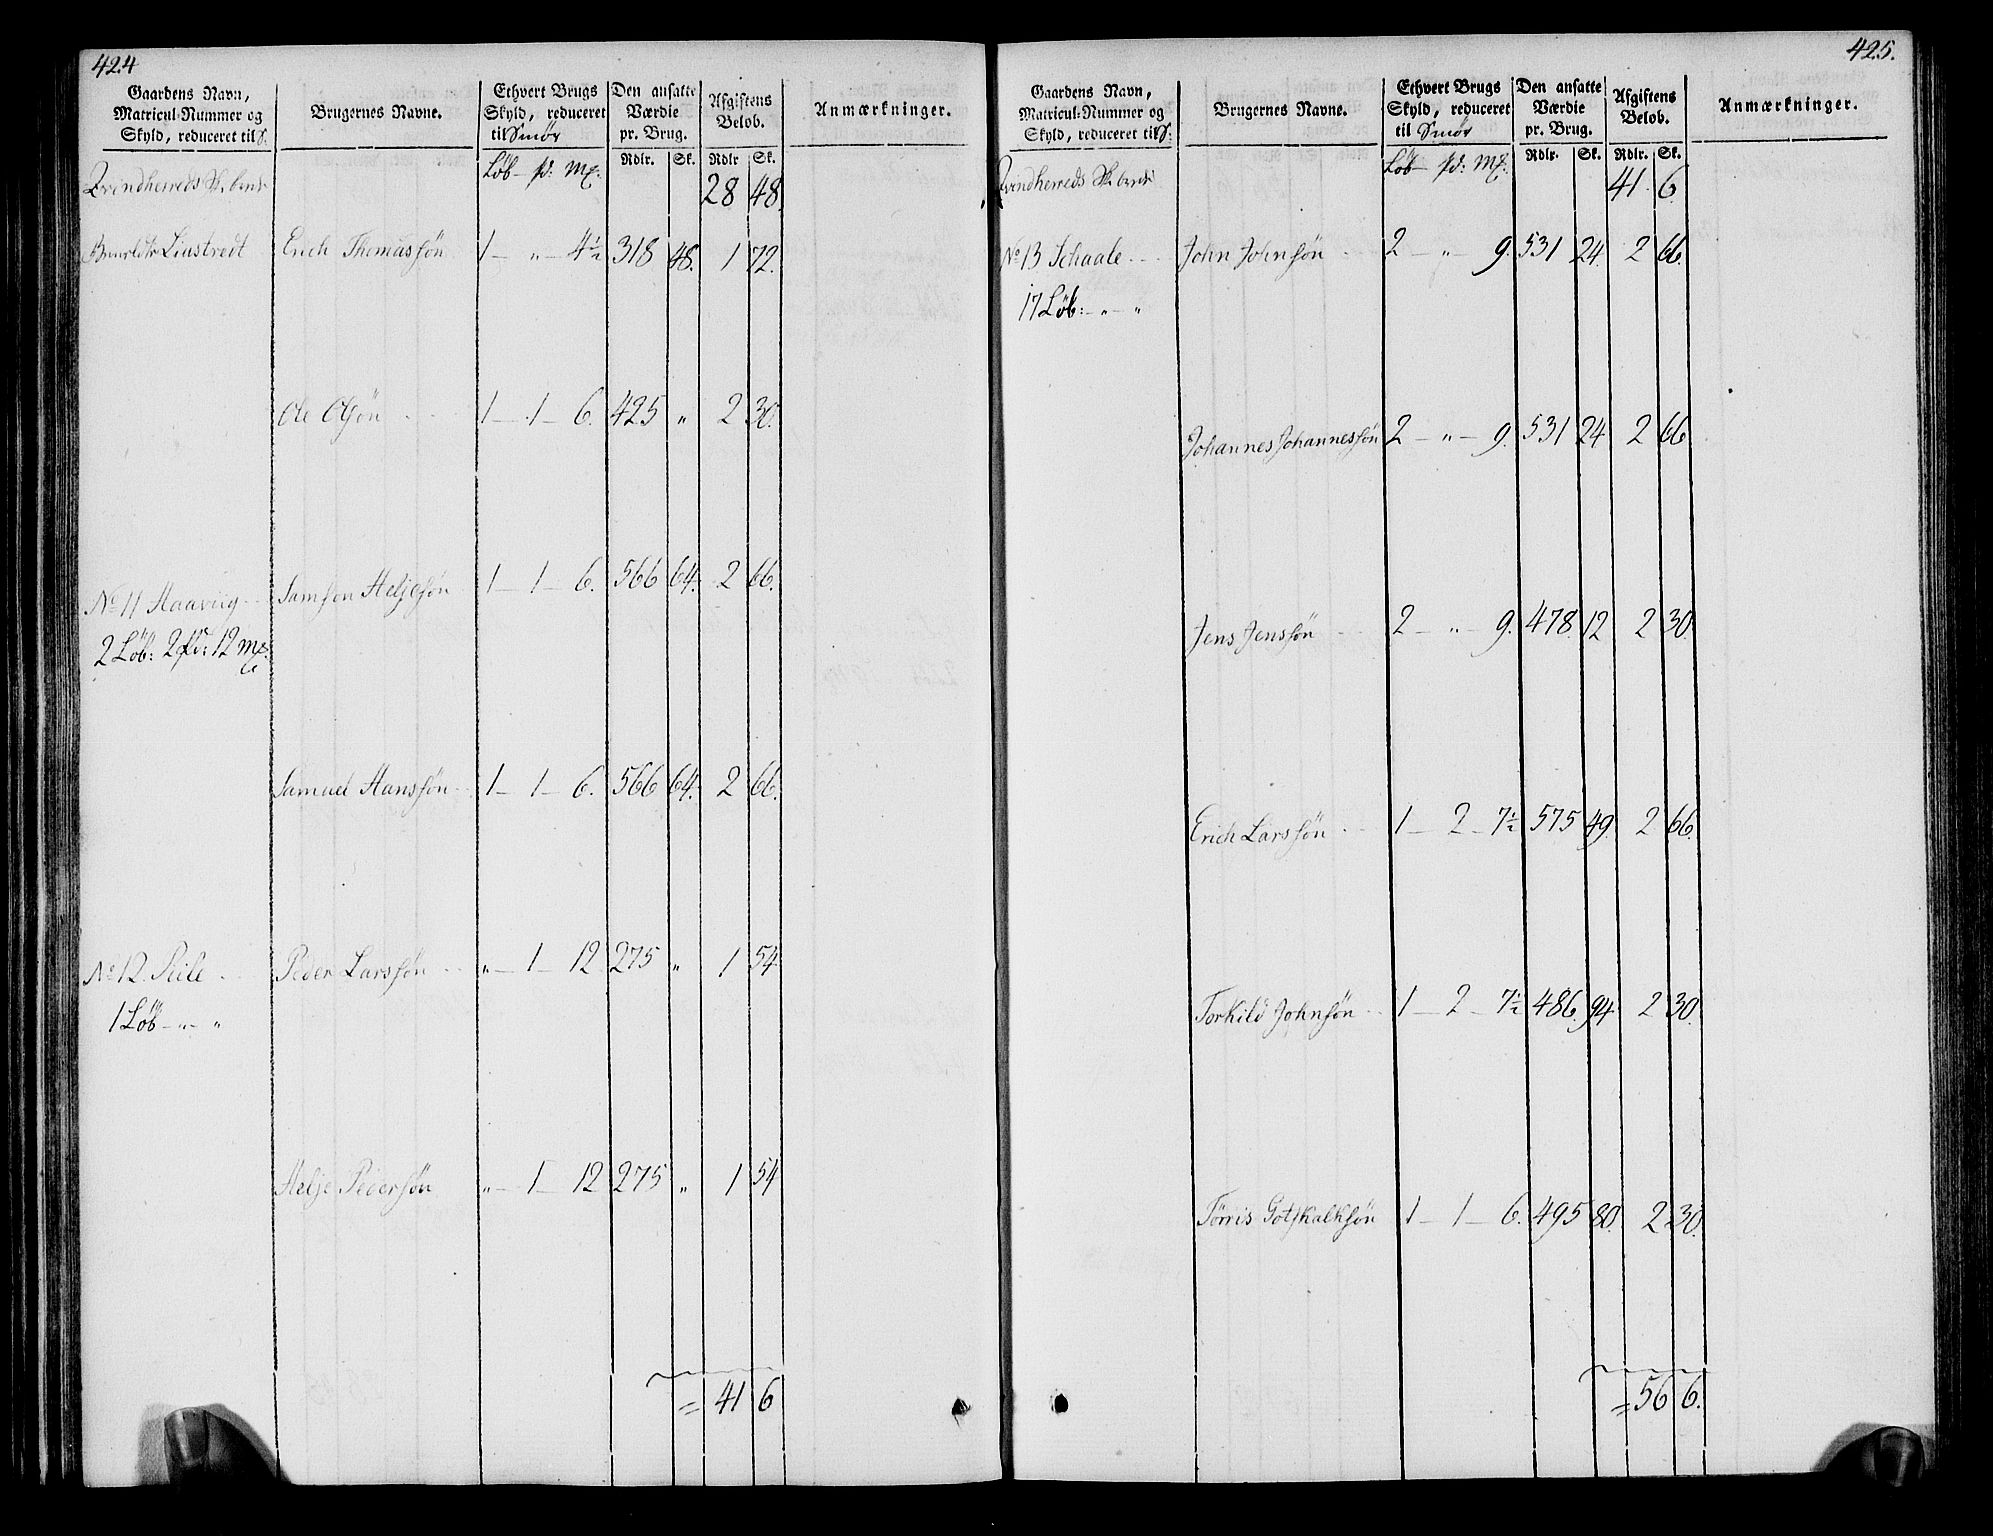 424
Gaardens Navn, Matricul-Nummer og Skyld, reduceret til S. | Brugernes Navne. | Ethvert Brugs Skyld, reduceret til Smör | Den ansatte Værdie pr. Brug. | Afgiftens Beløb. | Anmærkninger.
Löb – pd: mk: | Rdlr. | Sk. | Rdlr | Sk.
Qvindherreds 28 48.
Liustredt Erich Thomassön 1 – „ – 4½ 318 48. 1 72.
Ole Olsön 1 – 1 – 6. 425 „ 2 30.
No 11 Haavig Samson Heljesön 1 – 1 – 6. 566 64. 2 66.
2 Löb: 2 pd: 12 mk:
Samuel Hanssön 1 – 1 – 6. 566 64. 2 66.
No 12. Peile Peder Larssön „ – 1 – 12 275 „ 1 54
1 Löb – „ – „
Helje Pedersön „ – 1 – 12 275 „ 1 54
= 41 6
425.
Gaardens Navn, Matricul-Nummer og Skyld, reduceret til S. | Brugernes Navne. | Ethvert Brugs Skyld, reduceret til Smör | Den ansatte Værdie pr. Brug. | Afgiftens Beløb. | Anmærkninger.
Löb – pd: mk: | Rdlr. | Sk. | Rdlr. | Sk.
Qvindherreds 41 6.
No 13 Schaale John Johnsön 2 – „ – 9. 531 24. 2 66.
17 Löb: – „ – „
Johannes Johannessön 2 – „ – 9. 531 24 2 66
Jens Jenssön 2 – „ – 9. 478. 12 2 30
Erich Larssön 1 – 2 – 7½ 575 49. 2 66.
Torkild Johnsön 1 – 2 – 7½ 486. 94 2 30.
Törris Gotskalksön 1 – 1 – 6. 495 80. 2 30.
= 56 6.